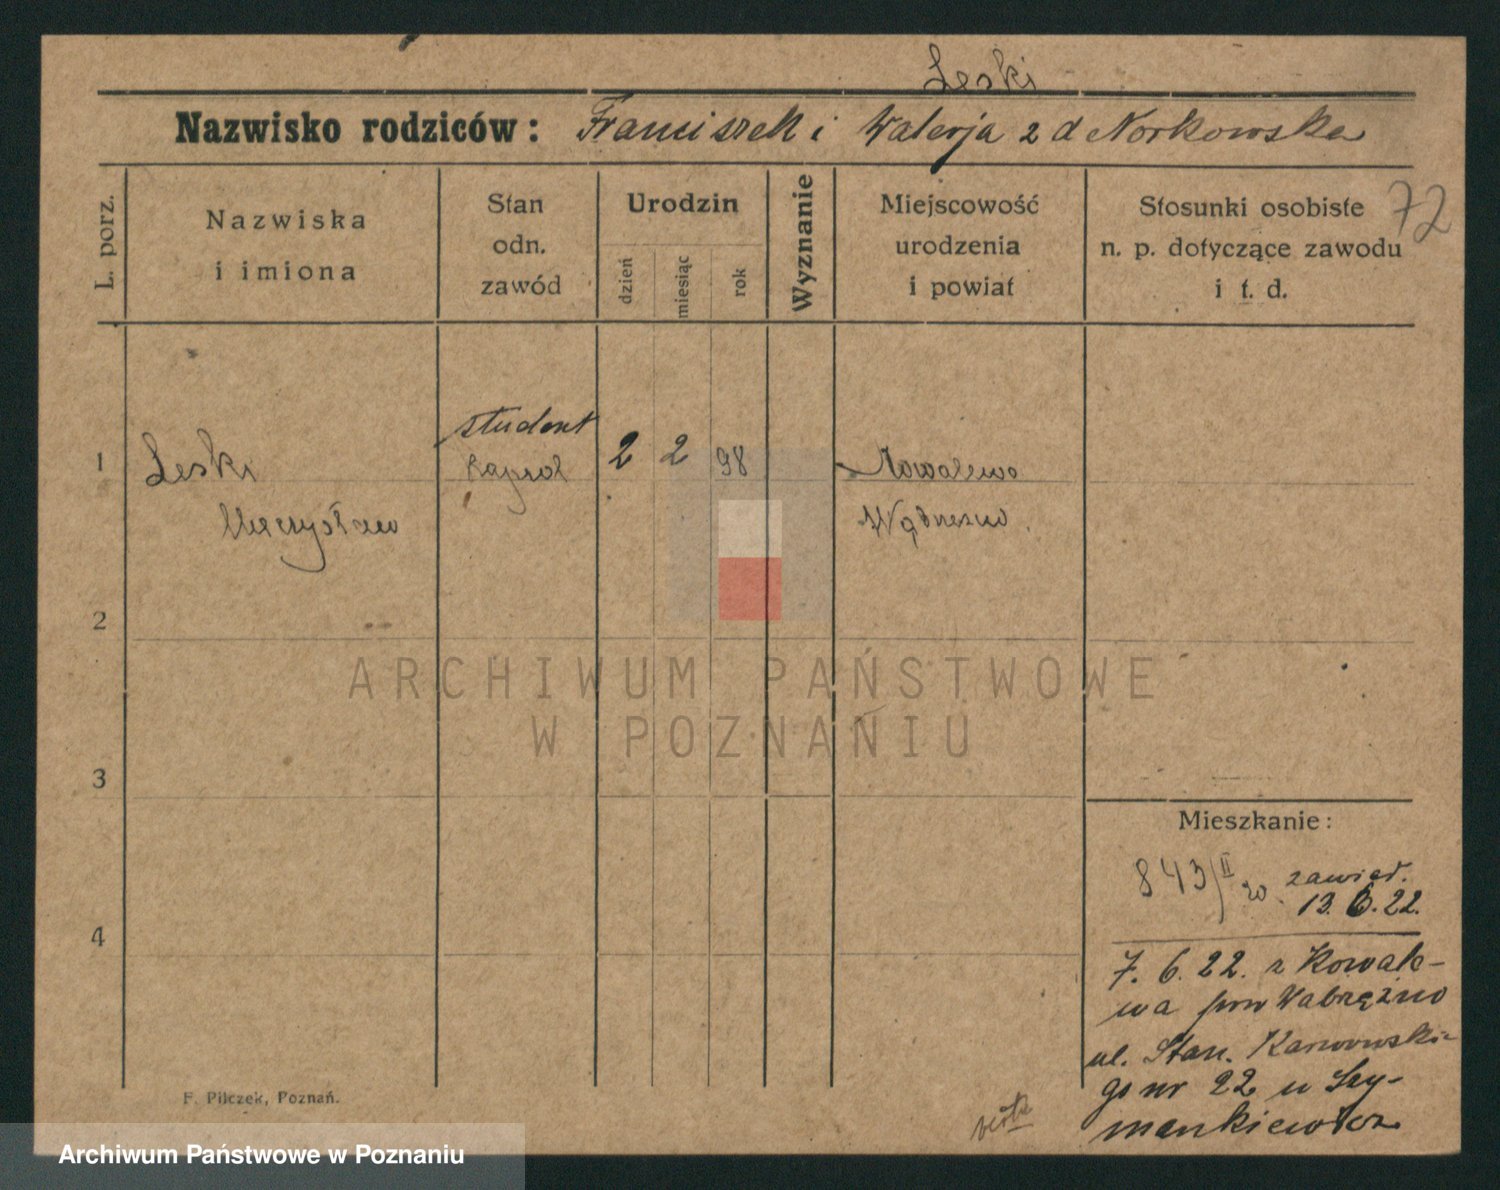 Leski
Nazwisko rodziców: Franciszek i Walerja z d Norkowska
72
L. porz.
Nazwiska
i imiona
Stan
odn.
zawód
Urodzin
dzień
miesiąc
rok
Wyznanie
Miejscowość
urodzenia
i powiat
Stosunki osobiste
n. p. dotyczące zawodu
i t. d.
student
1 Leski kapral 2 2 98
Mieczysław
2
ARCHIWUM PAŃSTWOWE
W POZNANIU
3
Mieszkanie:
843/II 20 zawiad.
13. 6. 22.
4
7. 6. 22. z Kowale-
wa pow Wabrzeźno
ul. Stan. Karwowskie-
go nr 22 u Szy-
mankiewicz
F. Pilczek, Poznań.
Archiwum Państwowe w Poznaniu